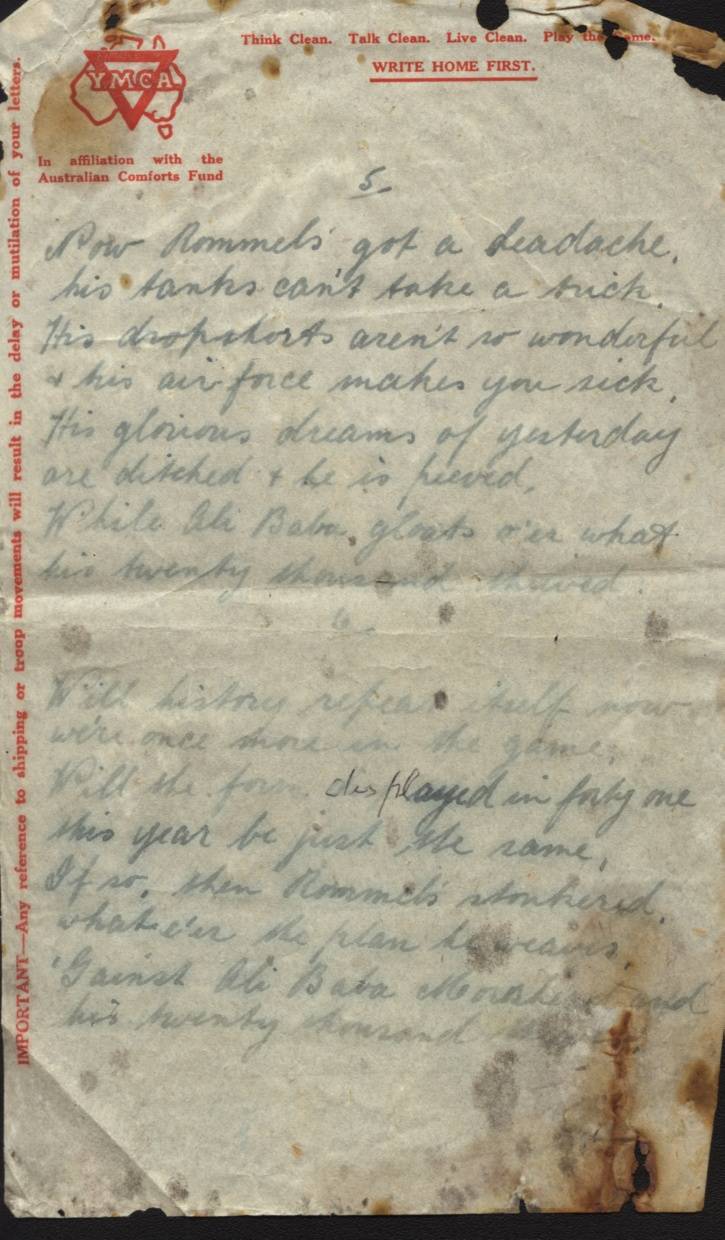 Think Clean. Talk Clean. Live Clean. Play the Game.
WRITE HOME FIRST.
YMCA
In affiliation with the
Australian Comforts Fund
IMPORTANT—Any reference to shipping or troop movements will result in the delay or mutilation of your letters.
5.
Now Rommels' got a headache,
his tanks can't take a trick.
His dropshorts aren't so wonderful
& his air force makes you sick.
His glorious dreams of yesterday
are ditched & he is peeved,
While Ali Baba gloats o'er what
his twenty thousand thieved.
6.
Will history repeat itself now
we're once more in the game,
Will the form displayed in forty one
this year be just the same,
If so, then Rommel's stonkered,
whate'er the plan he weaves,
'Gainst Ali Baba Morshead and
his twenty thousand